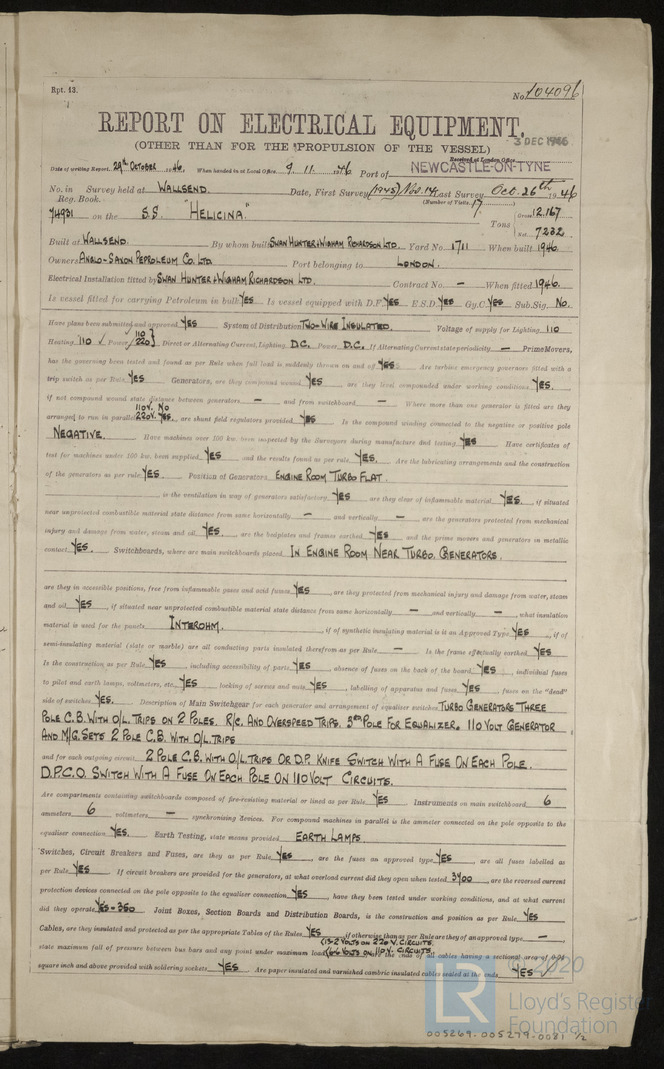 Rpt. 13.
No. 104096
REPORT ON ELECTRICAL EQUIPMENT.
(OTHER THAN FOR THE PROPULSION OF THE VESSEL)
3 DEC 1946
Received at London Office
Date of writing Report 29th October 1946. When handed in at Local Office 9. 11. 1946 Port of NEWCASTLE-ON-TYNE
No. in Survey held at WALLSEND. Date, First Survey (1945) Nov. 14 Last Survey Oct. 26th 1946
Reg. Book. (Number of Visits 17)
74931 on the S.S. "HELICINA" Tons Gross 12,167
Net 7232
Built at WALLSEND. By whom built SWAN HUNTER & WIGHAM RICHARDSON LTD. Yard No. 1711 When built 1946.
Owners ANGLO-SAXON PETROLEUM CO. LTD. Port belonging to LONDON.
Electrical Installation fitted by SWAN HUNTER & WIGHAM RICHARDSON LTD. Contract No. — When fitted 1946.
Is vessel fitted for carrying Petroleum in bulk YES Is vessel equipped with D.F. YES E.S.D. YES Gy.C. YES Sub.Sig. NO.
Have plans been submitted and approved YES System of Distribution TWO-WIRE INSULATED. Voltage of supply for Lighting 110
Heating 110 ✓ Power 110 / 220 Direct or Alternating Current, Lighting D.C. Power D.C. If Alternating Current state periodicity — Prime Movers,
has the governing been tested and found as per Rule when full load is suddenly thrown on and off YES Are turbine emergency governors fitted with a
trip switch as per Rule YES Generators, are they compound wound YES are they level compounded under working conditions YES.
if not compound wound state distance between generators — and from switchboard — Where more than one generator is fitted are they
arranged to run in parallel 110V. NO 220V. YES. are shunt field regulators provided YES Is the compound winding connected to the negative or positive pole
NEGATIVE. Have machines over 100 kw. been inspected by the Surveyors during manufacture and testing YES Have certificates of
test for machines under 100 kw. been supplied YES and the results found as per rule YES. Are the lubricating arrangements and the construction
of the generators as per rule YES Position of Generators ENGINE ROOM TURBO FLAT.
is the ventilation in way of generators satisfactory YES are they clear of inflammable material YES. if situated
near unprotected combustible material state distance from same horizontally — and vertically — are the generators protected from mechanical
injury and damage from water, steam and oil YES. are the bedplates and frames earthed YES and the prime movers and generators in metallic
contact YES. Switchboards, where are main switchboards placed IN ENGINE ROOM NEAR TURBO. GENERATORS.
are they in accessible positions, free from inflammable gases and acid fumes YES are they protected from mechanical injury and damage from water, steam
and oil YES if situated near unprotected combustible material state distance from same horizontally — and vertically — what insulation
material is used for the panels INTEROHM. if of synthetic insulating material is it an Approved Type YES, if of
semi-insulating material (slate or marble) are all conducting parts insulated therefrom as per Rule — Is the frame effectually earthed YES
Is the construction as per Rule YES, including accessibility of parts YES, absence of fuses on the back of the board YES, individual fuses
to pilot and earth lamps, voltmeters, etc. YES locking of screws and nuts YES, labelling of apparatus and fuses YES, fuses on the "dead"
side of switches YES. Description of Main Switchgear for each generator and arrangement of equaliser switches TURBO GENERATORS THREE
POLE C.B. WITH O/L. TRIPS ON 2 POLES. R/C. AND OVERSPEED TRIPS. 3RD POLE FOR EQUALIZER. 110 VOLT GENERATOR
AND M/G. SETS 2 POLE C.B. WITH O/L. TRIPS
and for each outgoing circuit 2 POLE C.B. WITH O/L. TRIPS OR D.P. KNIFE SWITCH WITH A FUSE ON EACH POLE.
D.P.C.O. SWITCH WITH A FUSE ON EACH POLE ON 110 VOLT CIRCUITS.
Are compartments containing switchboards composed of fire-resisting material or lined as per Rule YES Instruments on main switchboard 6
ammeters 6 voltmeters — synchronising devices. For compound machines in parallel is the ammeter connected on the pole opposite to the
equaliser connection YES. Earth Testing, state means provided EARTH LAMPS.
Switches, Circuit Breakers and Fuses, are they as per Rule YES, are the fuses an approved type YES, are all fuses labelled as
per Rule YES If circuit breakers are provided for the generators, at what overload current did they open when tested 3400, are the reversed current
protection devices connected on the pole opposite to the equaliser connection YES, have they been tested under working conditions, and at what current
did they operate YES - 350 Joint Boxes, Section Boards and Distribution Boards, is the construction and position as per Rule YES
Cables, are they insulated and protected as per the appropriate Tables of the Rules YES if otherwise than as per Rule are they of an approved type —
state maximum fall of pressure between bus bars and any point under maximum load (13.2 VOLTS ON 220 V. CIRCUITS. (6.6 VOLTS ON 110 V. CIRCUITS. are the ends of all cables having a sectional area of 0.04
square inch and above provided with soldering sockets YES Are paper insulated and varnished cambric insulated cables sealed at the ends YES
© 2020
LR
Lloyd's Register
Foundation
005269-005279-0081 1/2